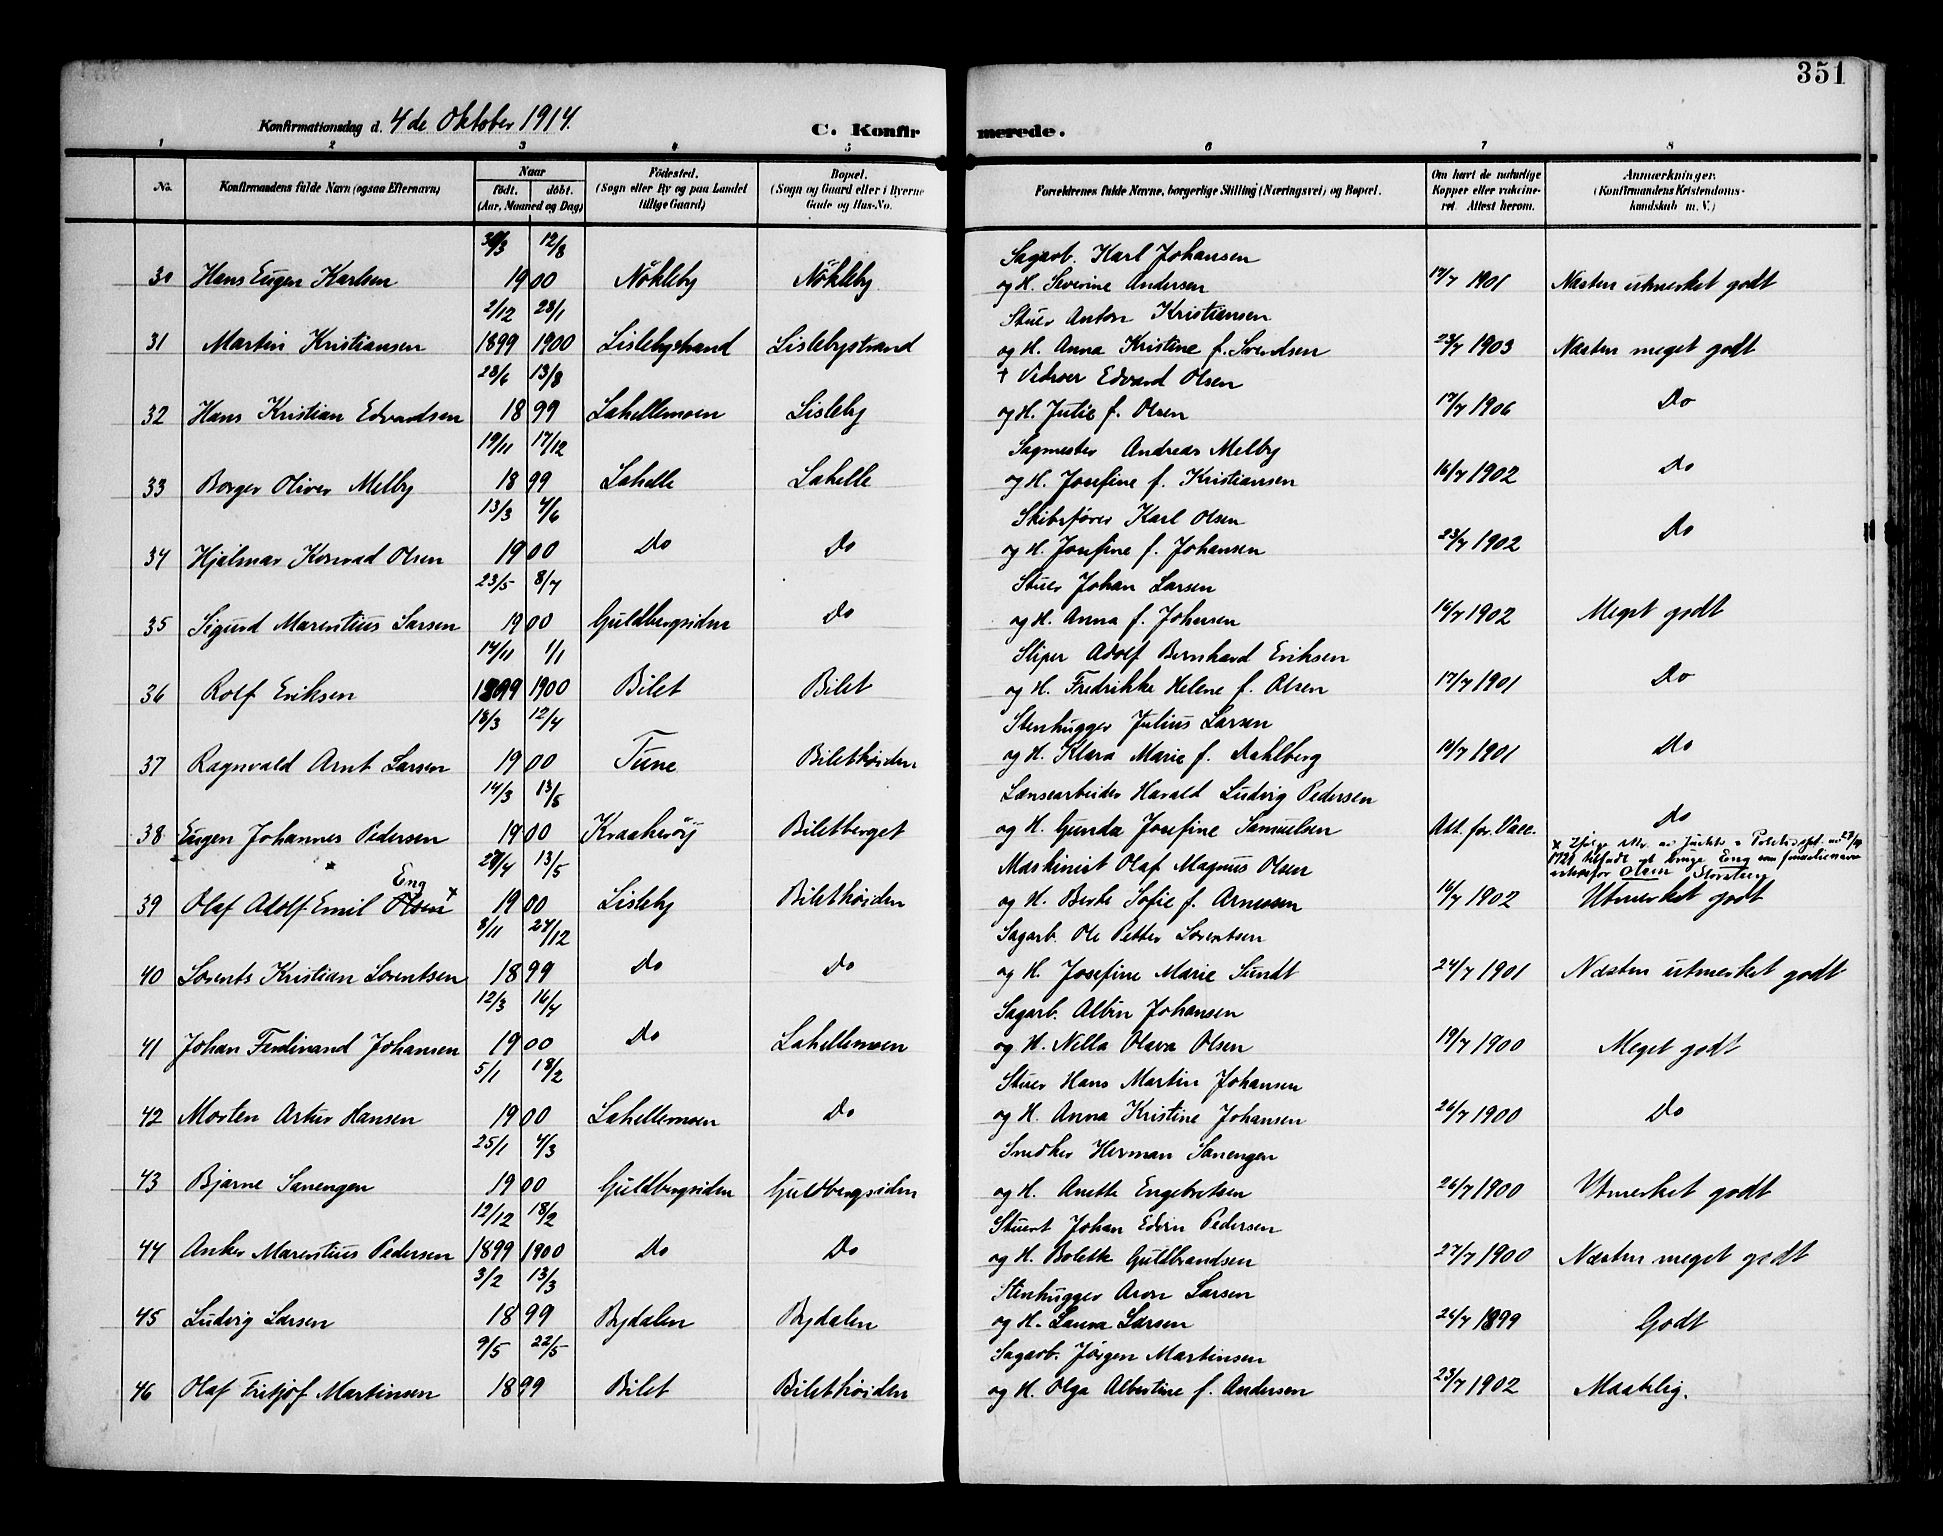 351
Konfirmationsdag d. 4de Oktober 1914.
C. Konfirmerede.
1 2 3 4 5 6 7 8
No. Konfirmandens fulde Navn (ogsaa Efternavn) Naar født. døbt. (Aar, Maaned og Dag) Fødested. (Sogn eller By og paa Landet tillige Gaard) Bopæl. (Sogn og Gaard eller i Byerne Gade og Hus-No. Forældrenes fulde Navne, borgerlige Stilling (Næringsvei) og Bopæl. Om havt de naturlige Kopper eller vaksineret. Attest herom. Anmærkninger. (Konfirmandens Kristendomskundskab m. V.)
30/3 12/8 Sagarb. Karl Johansen
30 Hans Eugen Karlsen 1900 Nökleby Nökleby og H. Severine Andersen 17/7 1901 Næsten utmerket godt
2/12 28/1 Stuer Anton Kristiansen
31 Martin Kristiansen 1899 1900 Lislebystrand Lislebystrand og H. Anna Kristine f. Svendsen 23/7 1903 Næsten meget godt
23/6 13/8 + Vedroer Edvard Olsen
32 Hans Kristian Edvardsen 1899 Lahellemoen Lisleby og H. Julie f. Olsen 17/7 1906 Do
19/11 17/12 Sagmester Andreas Melby
33 Borger Oliver Melby 1899 Lahelle Lahelle og H. Josefine f. Kristiansen 16/7 1902 Do
13/3 4/6 Skibsfører Karl Olsen
34 Hjalmar Konrad Olsen 1900 Do Do og H. Josefine f. Johansen 23/7 1902 Do
23/5 8/7 Stuer Johan Larsen
35 Sigurd Marentius Larsen 1900 Guldbergsiden Do og H. Anna f. Johansen 16/7 1902 Meget godt
14/11 1/1 Stiper Adolf Bernhard Eriksen
36 Rolf Eriksen 1899 1900 Bilet Bilet og H. Fredrikke Helene f. Olsen 17/7 1901 Do
18/3 12/4 Stenhugger Julius Larsen
37 Ragnvald Arnt Larsen 1900 Tune Bilethöiden og H. Klara Marie f. Dahlberg 10/7 1901 Do
14/3 13/5 Lænsearbeider Harald Ludvig Pedersen
38 Eugen Johannes Pedersen 1900 Kraakeröy Biletberget og H. Gunda Josefine Samuelsen Att. for. Vacc. Do
27/4 13/5 Maskinist Olaf Magnus Olsen x Ifølge skr. av Justits- o Politidept. av 1921 tilladt at bruge Eng som familienavn istedetfor Olsen
39 Olaf Adolf Emil Olsen Eng x 1900 Lisleby Bilethöiden og H. Berte Sofie f. Arnesen 16/7 1902 Utmerket godt
8/11 27/12 Sagarb. Ole Petter Lorentsen
40 Lorents Kristian Lorentsen 1899 Do Do og H. Josefine Marie Sundt 24/7 1901 Næsten utmerket godt
12/3 16/4 Sagarb. Albin Johansen
41 Johan Ferdinand Johansen 1900 Do Lahellemoen og H. Nella Olava Olsen 19/7 1900 Meget godt
5/1 18/2 Stuer Hans Martin Johansen
42 Morten Artur Hansen 1900 Lahellemoen Do og H. Anna Kristine Johansen 26/7 1900 Do
25/1 4/3 Snedker Herman Sanengen
43 Bjarne Sanengen 1900 Guldbergsiden Guldbergsiden og H. Anette Engebretsen 26/7 1900 Utmerket godt
12/12 18/2 Stuert Johan Edvin Pedersen
44 Anker Marentius Pedersen 1899 1900 Do Do og H. Bolette Guldbrandsen 27/7 1900 Næsten meget godt
3/2 13/3 Stenhugger Aron Larsen
45 Ludvig Larsen 1899 Bydalen Bydalen og H. Laura Larsen 24/7 1899 Godt
9/5 22/5 Sagarb. Jörgen Martinsen
46 Olaf Fritjof Martinsen 1899 Bilet Bilethöiden og H. Olga Albertine f. Andersen 23/7 1902 Maatelig.